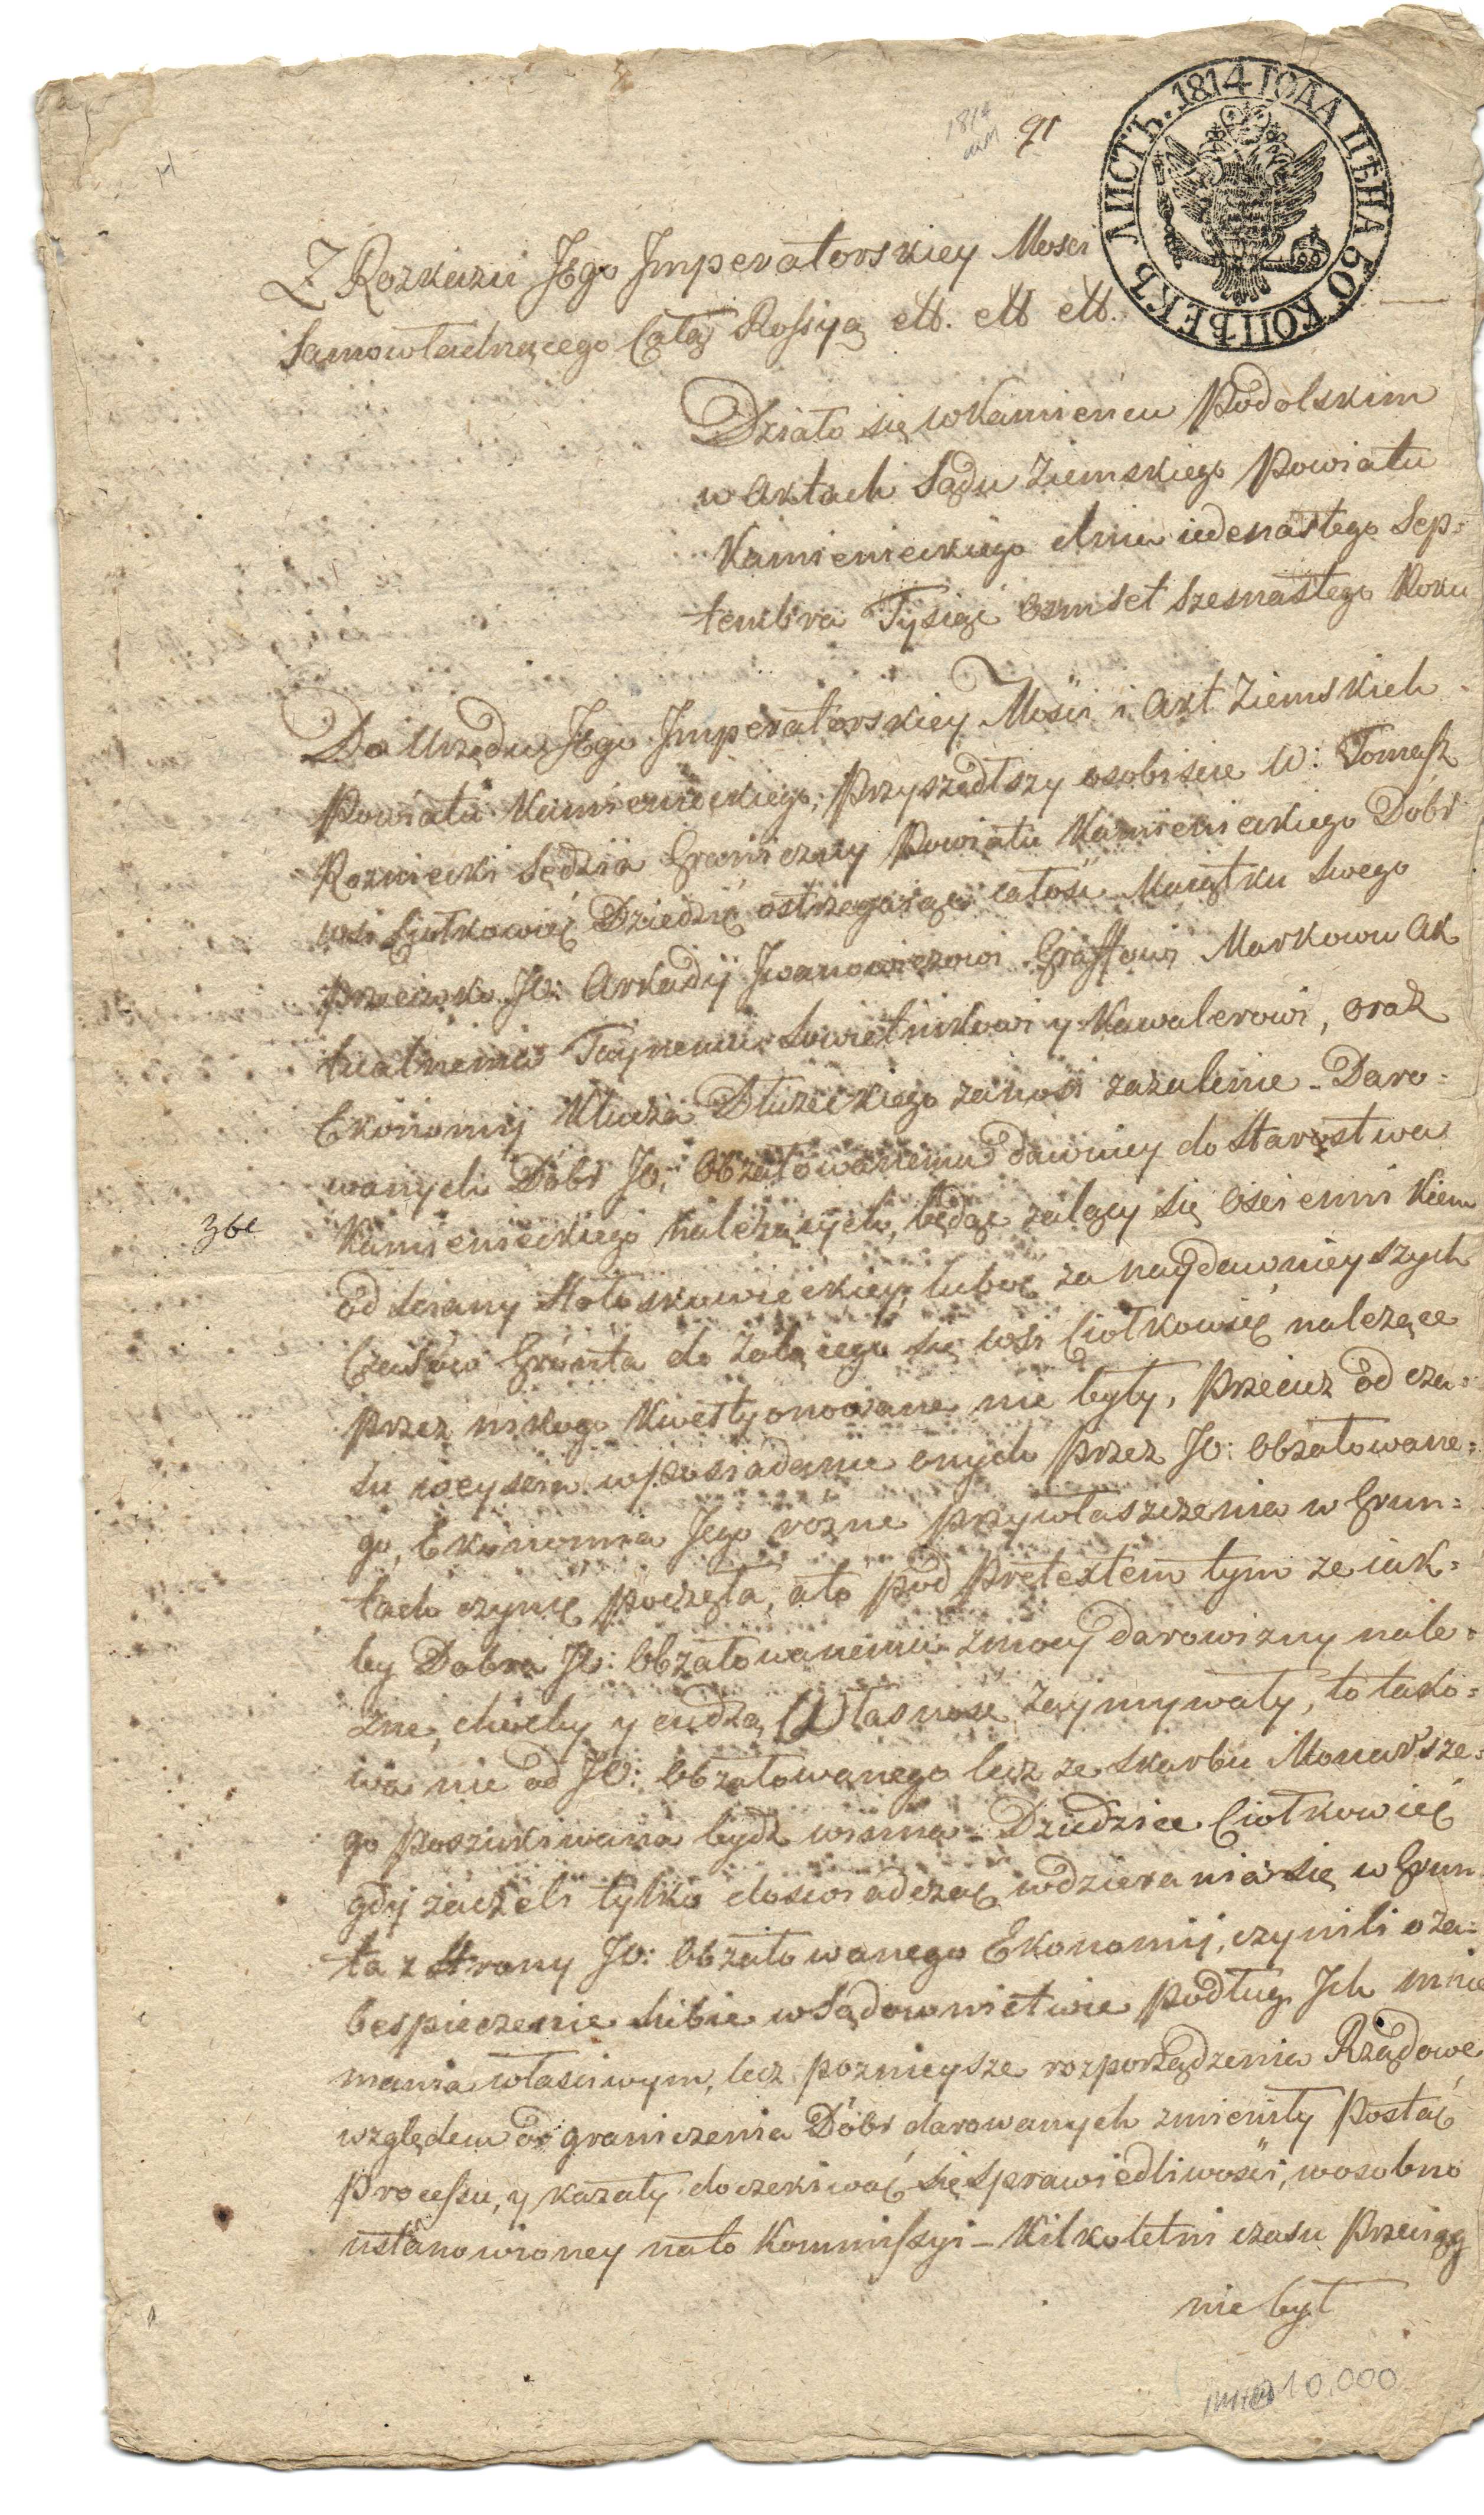 91
ЛИСТЪ. 1814 ГОДА ЦѢНА 50 КОПѢЕКЪ
Z Rozkazu JEgo Jmperatorskiey Mosci
Samowładnącego Całą Rossyą ett. ett ett.
Działo się w Kamieńcu Podolskim
w Aktach Sądu Ziemskiego Powiatu
Kamienieckiego dnia iedenastego Sep=
tembra Tysiąć Osmset szesnastego Roku
Do Urzędu JEgo Jmperatorskiey Mości i Akt Ziemskich
Powiatu Kamienieckiego, Przyszedłszy osobiscie W: Tomasz
Rozniecki Sędzia Graniczny Powiatu Kamienieckiego Dobr
wsi Ciołkowiec Dziedzić ostrzegaiąc całość Maiątku swego
przeciwko JW: Arkadij Jwanowiczowi Graffowi Markowu Ak
tualnemu Taynemu Sowietnikowi y Kawalerowi, oraz
Ekonomij Klucza Dłużeckiego zanosi zazalenie - Daro=
wanych Dobr JW: Obżałowanemu dawniey do Starostwa
Kamienieckiego należących, będąc żalący się Osciennikiem
36e
od sciany Hołoskowieckiey, luboć za naydawnieyszych
Czasów Grónta do żalącego się wsi Ciołkowieć należące
przez nikogo kwestyonowane nie były, Przecież od cza=
su weyscia w posiadanie onych przez JW: Obżałowane=
go, Ekonomia Jego rozne przywłaszczenia w Grun=
tach czynić poczęła, a to pod pretextem tym ze iak=
by Dobra JW: Obżałowanemu z mocy darowizny nale=
żne, choćby y cudzą Własność zaymywały, to tako=
wa nie od JW: Obżałowanego lecz ze skarbu Monarsze=
go poszukiwana bydź winna - Dziedzice Ciołkowieć
gdy zaczeli tylko doswiadczać wdzierania się w Grun
ta z strony JW: Obżałowanego Ekonomij, czynili oza=
bespieczenie sibie w Sądownictwie podług Jch mnie
mania własciwym, lecz poznieysze rozporządzenia Rządowe
względem odgraniczenia Dobr darowanych zmieniły Postać
Processu, y kazały doczekiwać się sprawiedliwości, w osobno
ustanowioney na to Kommissyi - Kilkoletni czasu Przeciąg
nie był
10,000